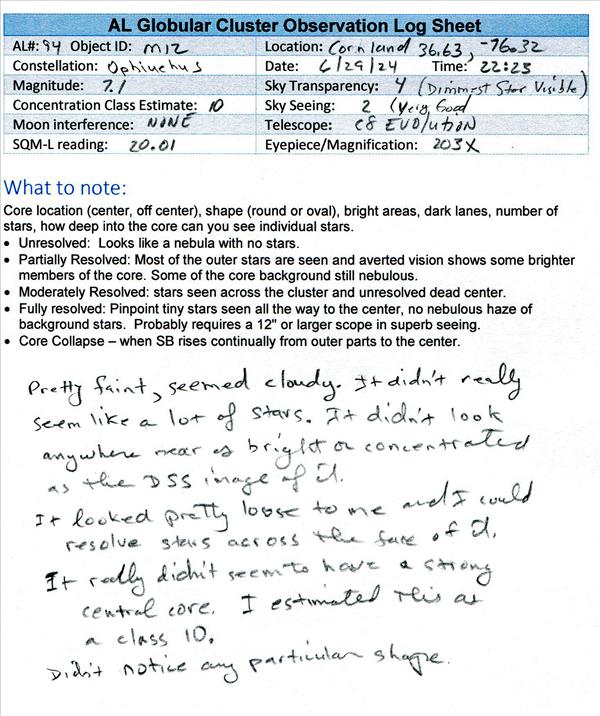 AL Globular Cluster Observation Log Sheet
AL#: 94 Object ID: M12 Location: Cornland 36.63, -76.32
Constellation: Ophiuchus Date: 6/29/24 Time: 22:25
Magnitude: 7.1 Sky Transparency: 4 (Dimmest Star Visible)
Concentration Class Estimate: 10 Sky Seeing: 2 (Very Good
Moon interference: NONE Telescope: C8 EVOlution
SQM-L reading: 20.01 Eyepiece/Magnification: 203X
What to note:
Core location (center, off center), shape (round or oval), bright areas, dark lanes, number of
stars, how deep into the core can you see individual stars.
• Unresolved: Looks like a nebula with no stars.
• Partially Resolved: Most of the outer stars are seen and averted vision shows some brighter
members of the core. Some of the core background still nebulous.
• Moderately Resolved: stars seen across the cluster and unresolved dead center.
• Fully resolved: Pinpoint tiny stars seen all the way to the center, no nebulous haze of
background stars. Probably requires a 12" or larger scope in superb seeing.
• Core Collapse – when SB rises continually from outer parts to the center.
Pretty faint, seemed cloudy. It didn't really
seem like a lot of stars. It didn't look
anywhere near as bright or concentrated
as the DSS image of it.
It looked pretty loose to me and I could
resolve stars across the face of it.
It really didn't seem to have a strong
central core. I estimated this as
a class 10.
Didn't notice any particular shape.